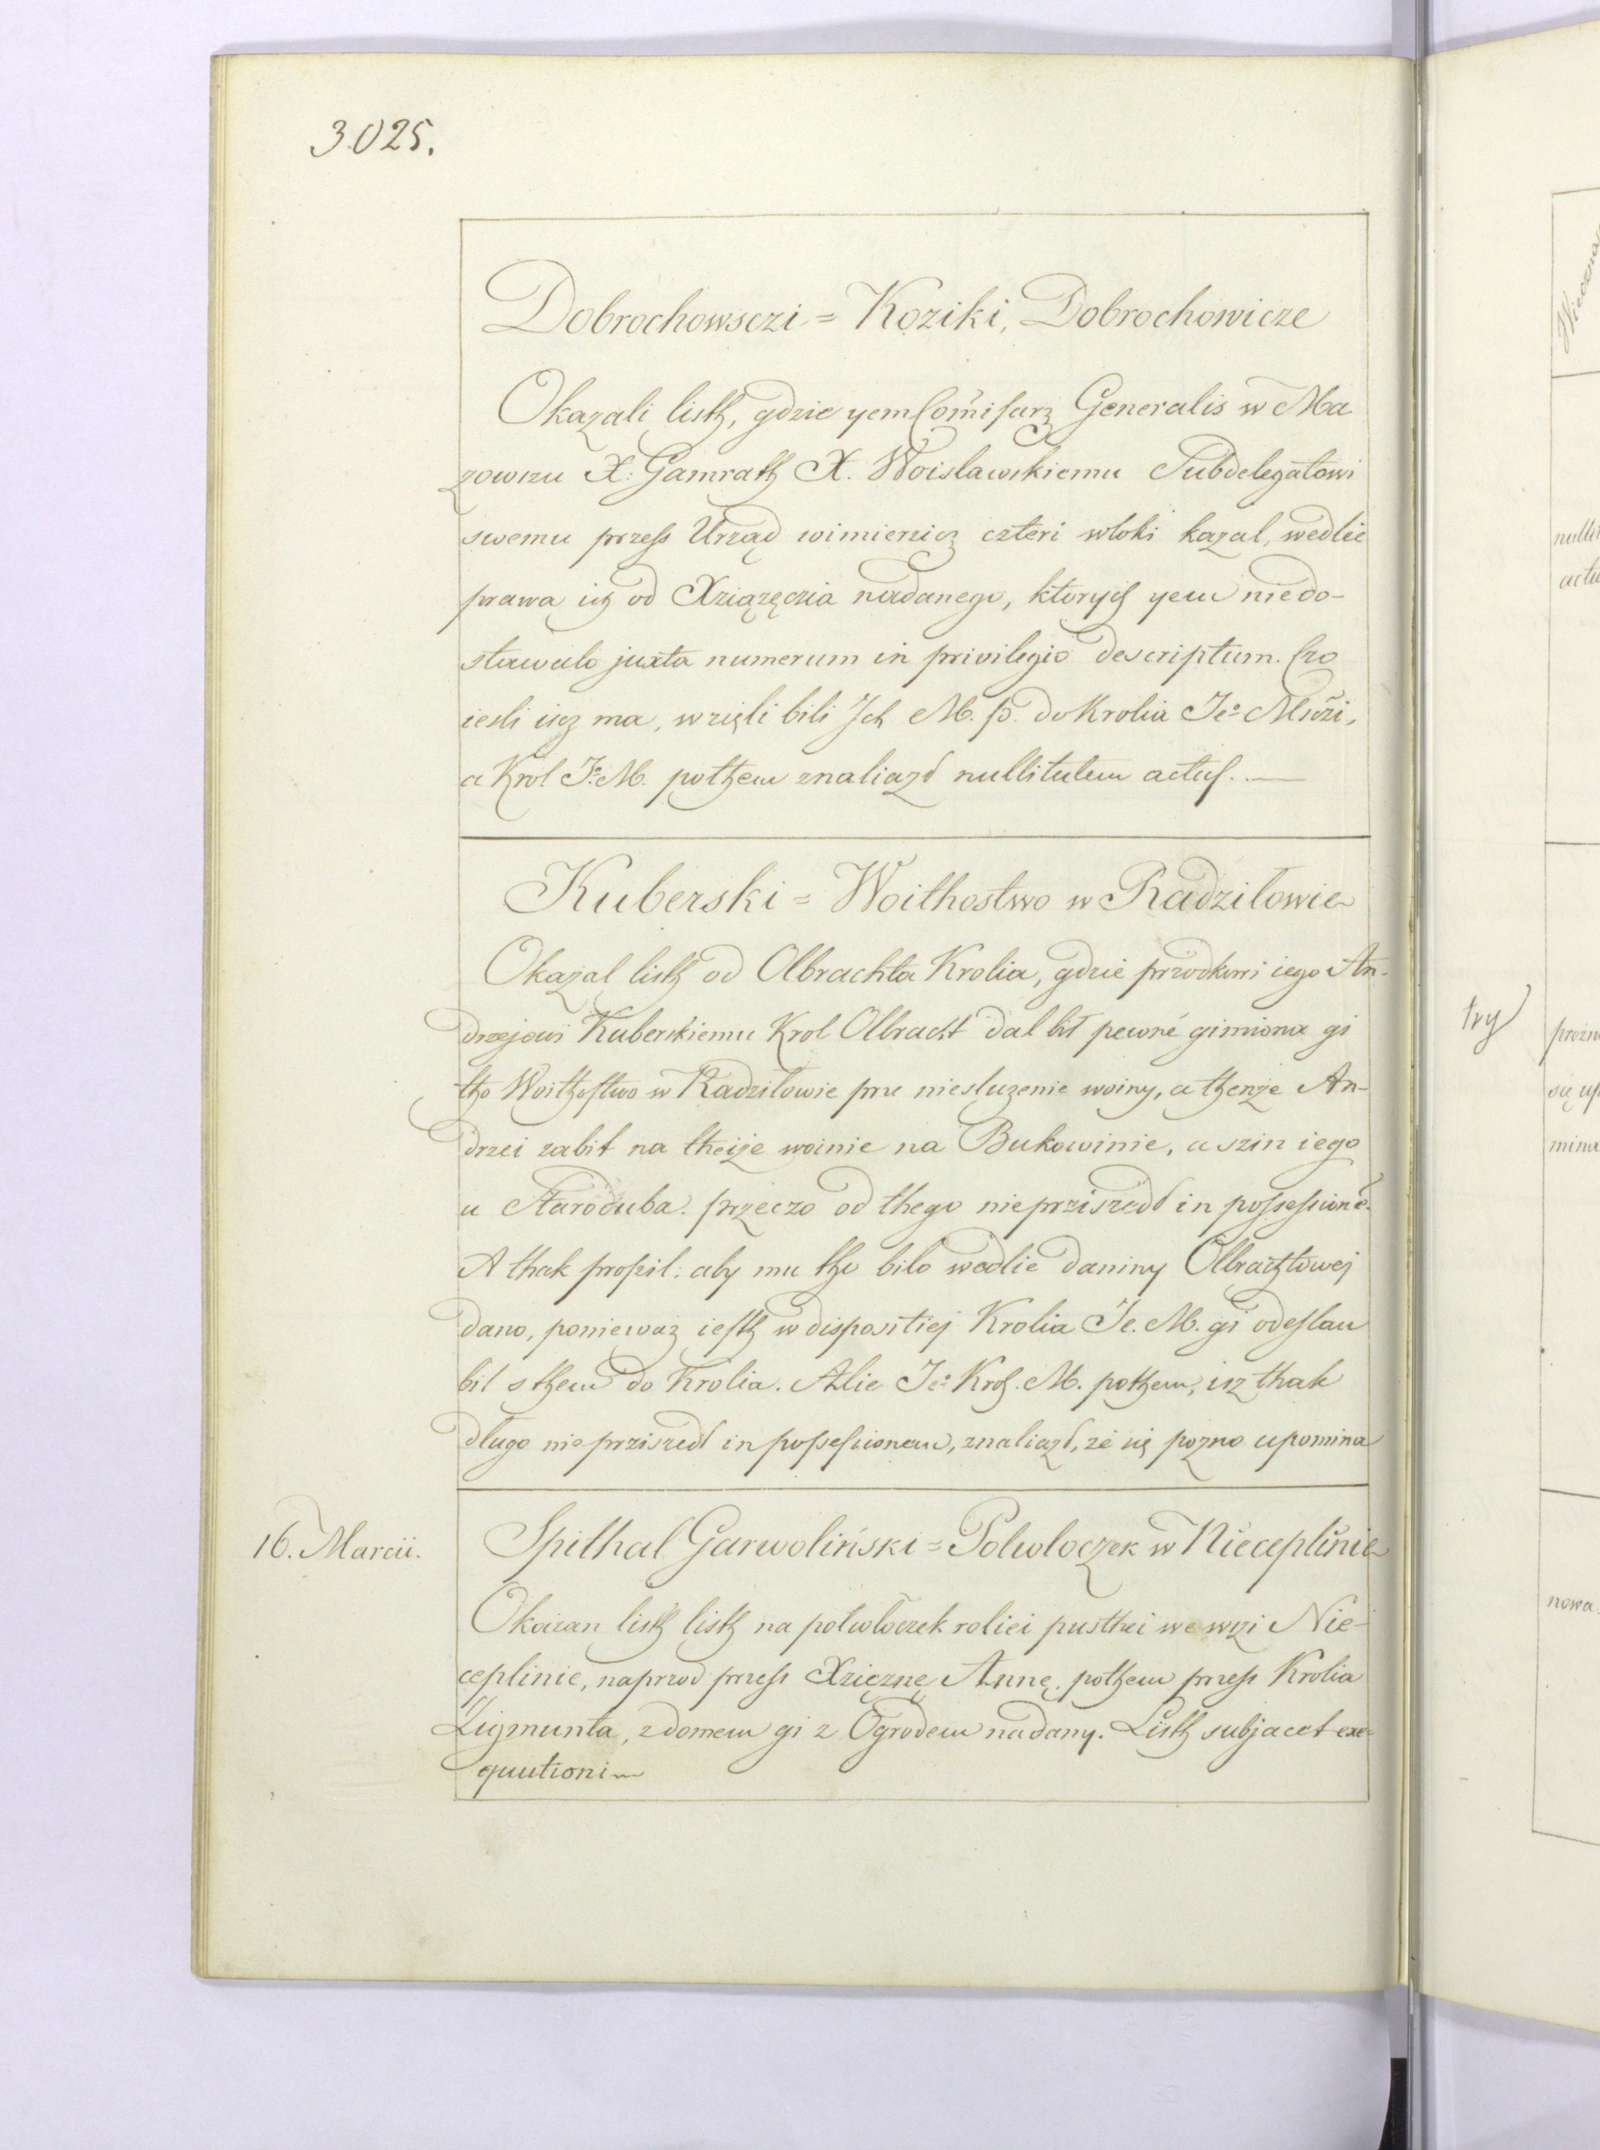 3025.
Dobrochowsczi = Koziki, Dobrochowicze
Okazali listh, gdzie yem Com̃isarz Generalis w Ma
zowszu X. Gamrath X. Woislawskiemu Subdelegatowi
swemu przess Urząd wimierzicz czteri wloki kazal, wedlie
prawa ich od Xziązęczia nadanego, ktorych yem niedo-
stawalo juxta numerum in privilegio descriptum. Czo
iesli iscz ma, wzięli bili Ich M. p. do Krolia Je° Msczi,
a Krol J° M. pothem znaliazł nullitatem actus.
Kuberski = Woithostwo w Radziłowie
Okazal listh od Olbrachta Krolia, gdzie przodkowi iego An-
drzejowi Kuberskiemu Krol Olbracht dal bił pewné gimiona gi
tho Woithostwo w Radziłowie prze niesluzenie woiny, a thenże An-
drzei zabit na theiże woinie na Bukowinie, a szin iego
u Staroduba. przeczo od thego nieprziszedł in possessionē.
A thak prosił: aby mu tho bilo wedlie daniny Olbrachtowej
dano, ponieważ iesth w dispositiej Krolia Je. M. gi odeslan
bil s them do Krolia. Alie Je° Kroł. M. pothem, isz thak
długo nie prziszedł in possessionem, znaliazł, że się pozno upomina
16. Marcii.
Spithal Garwoliński = Polwloczek w Niecieplinie
Okazan listh listh na polwloczek roliei pusthei we wszi Nie-
ceplinie, naprzod przess Xzięznę Annę, pothem przess Krolia
Zigmunta, z domem gi z Ogrodem nadany. Listh subjacet exe-
quutioni
try
nowa.